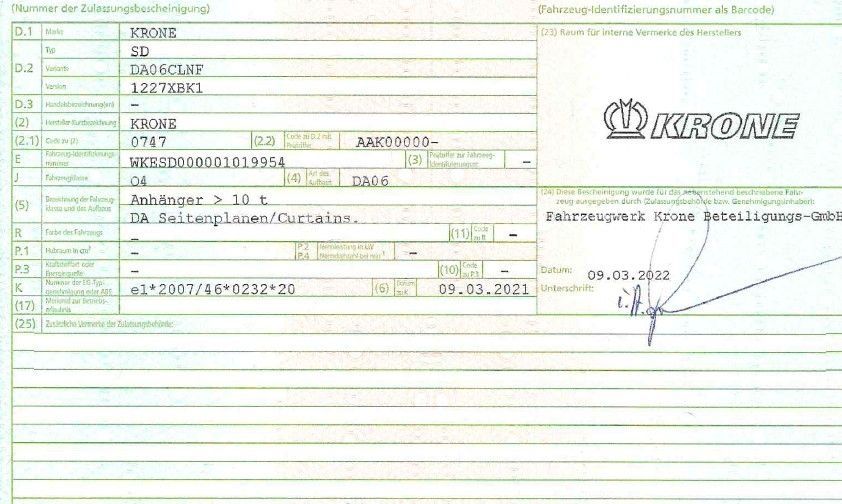 (Nummer der Zulassungsbescheinigung)
(Fahrzeug-Identifizierungsnummer als Barcode)
D.1 Marke KRONE
Typ SD
D.2 Variante DA06CLNF
Version 1227XBK1
D.3 Handelsbezeichnung(en) –
(2) Hersteller-Kurzbezeichnung KRONE
(2.1) Code zu (2) 0747 (2.2) Code zu D.2 mit Prüfziffer AAK00000-
E Fahrzeug-Identifizierungsnummer WKESD000001019954 (3) Prüfziffer zur Fahrzeug-Identifizierungsnr. –
J Fahrzeugklasse O4 (4) Art des Aufbaus DA06
(5) Bezeichnung der Fahrzeugklasse und des Aufbaus Anhänger > 10 t
DA Seitenplanen/Curtains.
R Farbe des Fahrzeugs – (11) Code zu R –
P.1 Hubraum in cm³ – P.2 P.4 Nennleistung in kW –
P.3 Kraftstoffart oder Energiequelle – (10) Code zu P.3 –
K Nummer der EG-Typgenehmigung oder ABE e1*2007/46*0232*20 (6) Datum zu K 09.03.2021
(17) Merkmal zur Betriebserlaubnis
(25) Zusätzliche Vermerke der Zulassungsbehörde:
(23) Raum für interne Vermerke des Herstellers
KRONE
(24) Diese Bescheinigung wurde für das nebenstehend beschriebene Fahr-
zeug ausgegeben durch (Zulassungsbehörde bzw. Genehmigungsinhaber):
Fahrzeugwerk Krone Beteiligungs-GmbH
Datum: 09.03.2022
Unterschrift: